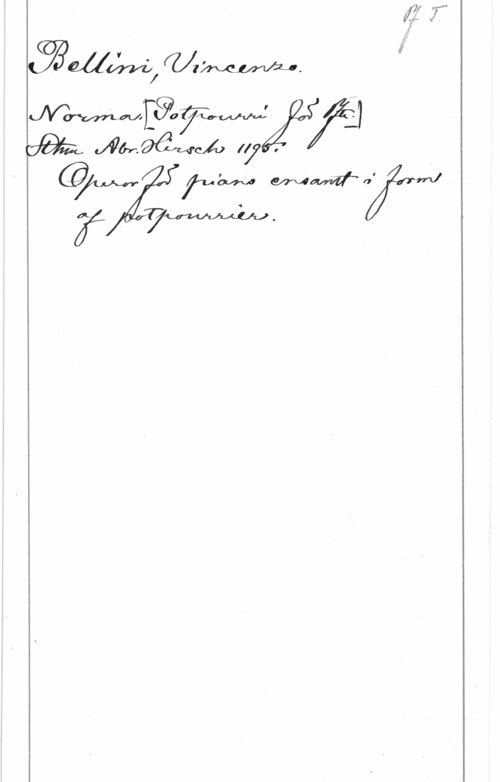 Pf T
Bellini, Vincenzo.
Norma. [Potpourri för pfte.]
Sthm Abr. Hirsch 1196.
Operor för piano ensamt i form
af potpourrier.